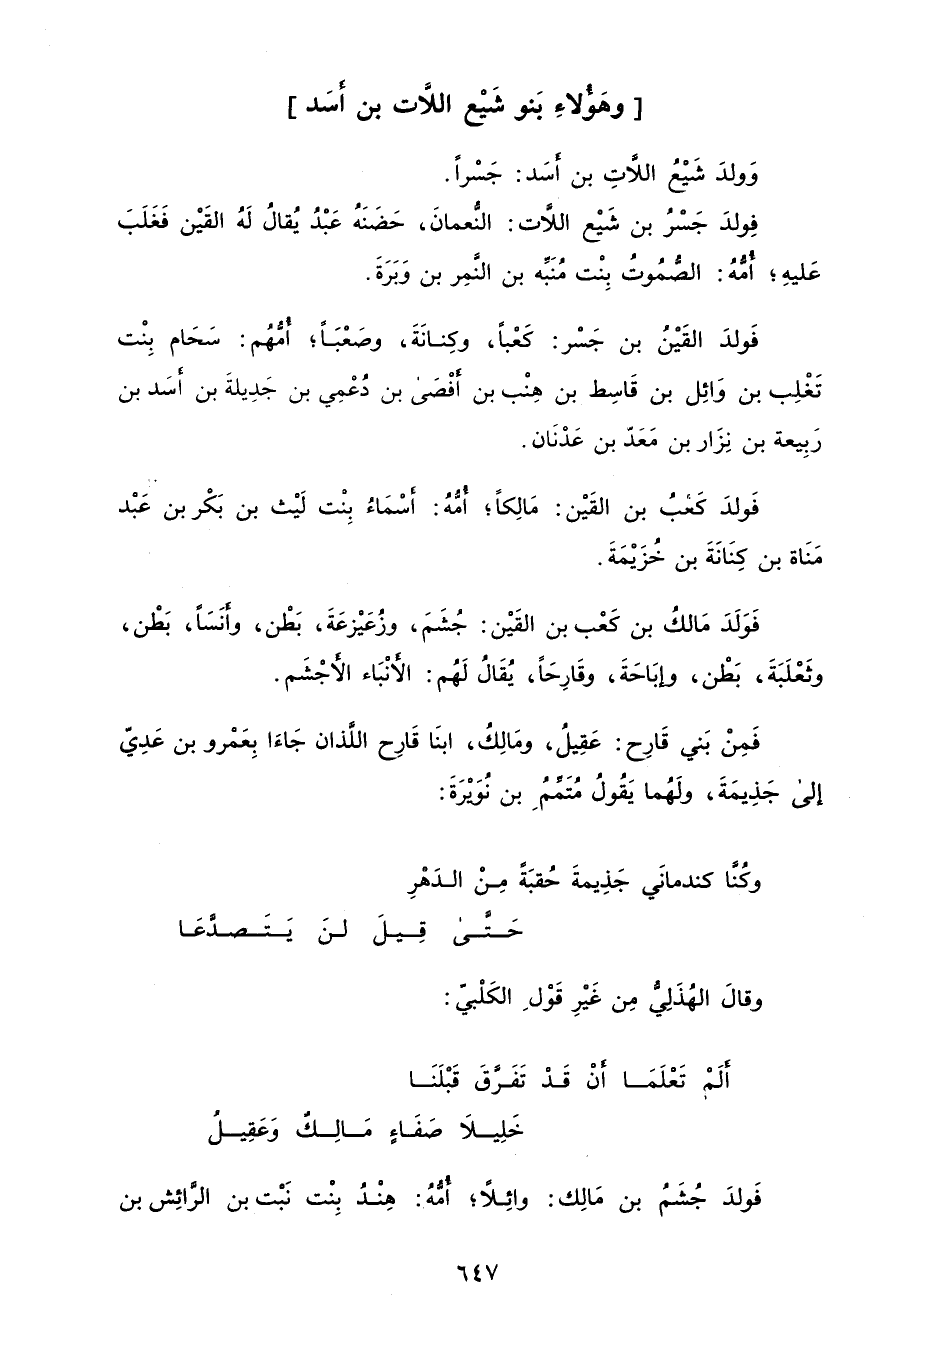 [ وهَؤُلاءِ بَنو شَيْع اللَّات بن أَسَد ]
وَولدَ شَيْعُ اللَّاتِ بن أَسَد: جَسْراً.
فِولدَ جَسْرُ بن شَيْع اللَّات: النُّعمانَ، حَضَنَهُ عَبْدُ يُقالُ لَهُ القَيْن فَغَلَبَ
عَليهِ؛ أُمُّهُ: الصُّمُوتُ بِنْت مُنَبِّه بن النَّمِر بن وَبَرَةَ.
فَولدَ القَيْنُ بن جَسْر: كَعْباً، وكِنـانَةَ، وصَعْبَـاً؛ أُمُّهُم: سَحَام بِنْت
تَغْلِب بن وَائِل بن قَاسِط بن هِنْب بن أَفْصَىٰ بن دُعْمِي بن جَدِيلة بن أَسَد بن
رَبِيعة بن نِزَار بن مَعَدّ بن عَدْنَان.
فَولدَ كَعْبُ بن القَيْن: مَالِكاً؛ أُمُّهُ: أَسْمَاءُ بِنْت لَيْث بن بَكْر بن عَبْد
مَنَاة بن كِنَانَةَ بن خُزَيْمَةَ.
فَوَلَدَ مَالكُ بن كَعْب بن القَيْن: جُشَمَ، وزُعَيْزعَةَ، بَطْن، وأَنَسَاً، بَطْن،
وثَعْلَبَةَ، بَطْن، وإبَاحَةَ، وقَارِحَاً، يُقَالُ لَهُم: الأَنْبَاء الأَجْشَم.
فَمِنْ بَني قَارِح: عَقِيلُ، ومَالِكُ، ابنَا قَارِح اللَّذان جَاءَا بِعَمْرو بن عَدِيّ
إلىٰ جَذِيمَةَ، ولَهُما يَقُولُ مُتَمِّمُ بن نُوَيْرَةَ:
وكُنَّا كندماني جَذِيمةَ حُقبَةً مِـنْ الـدَهْرِ
حَـتَّـىٰ قِـيـلَ لـنَ يَـتَـصـدَّعَـا
وقالَ الهُذَلِيُّ مِن غَيْرِ قَوْل الكَلْبيّ:
أَلَمْ تَعْلَمَـا أَنْ قَـدْ تَفَـرَّقَ قَبْلَنَـا
خَلِيـلَا صَفَـاءٍ مَـالِـكُ وَعَقِيـلُ
فَولدَ جُشَمُ بن مَالِك: وائِـلًا؛ أُمُّهُ: هِنْـدُ بِنْت نَبْت بن الرَّائِش بن
٦٤٧